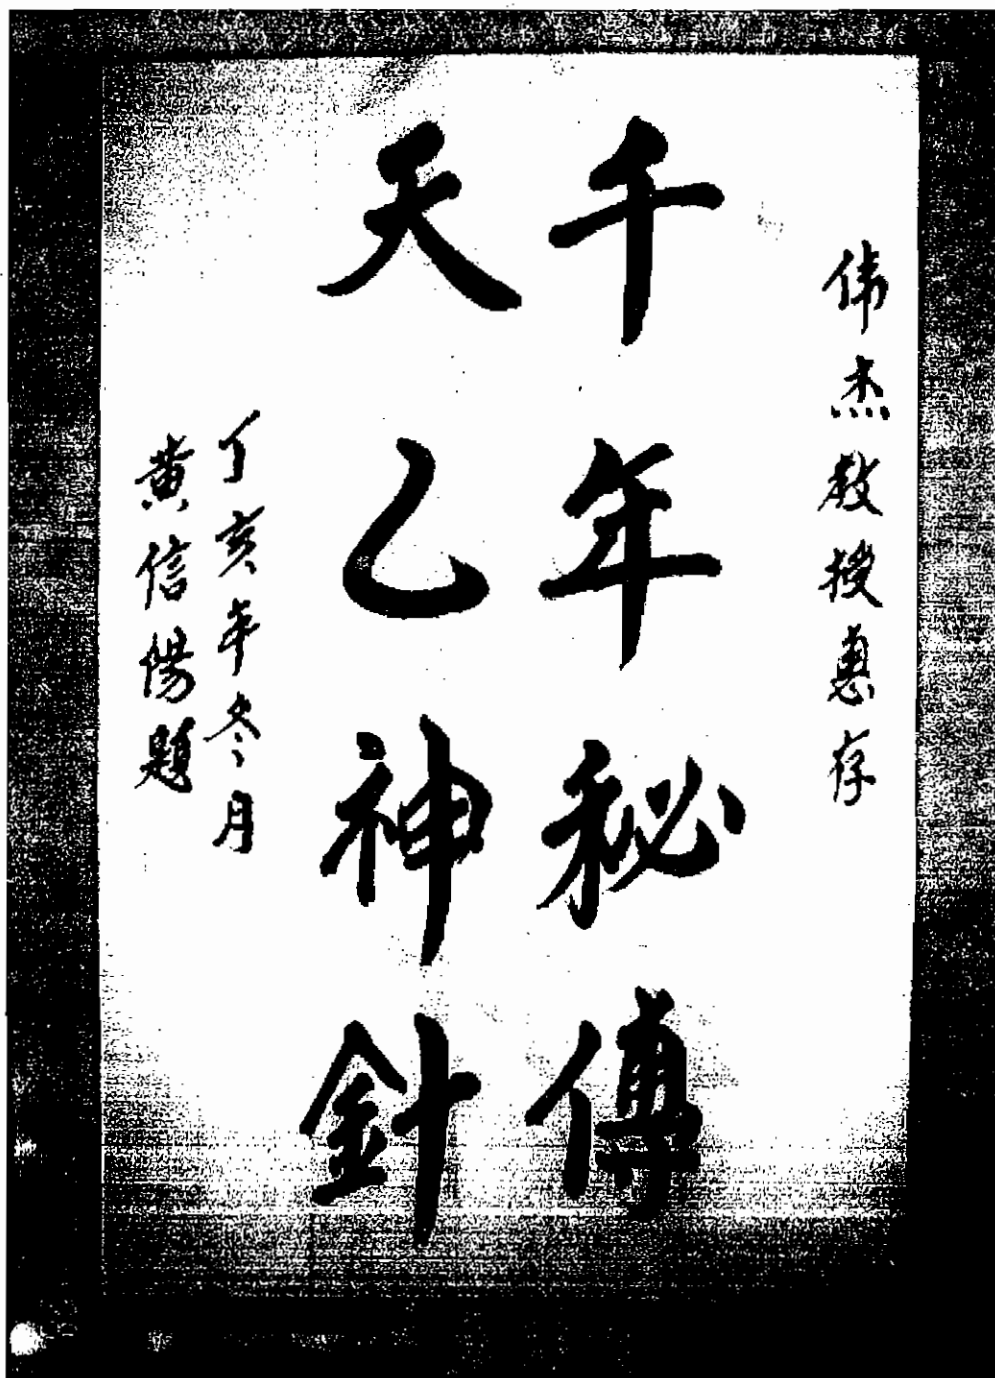 伟杰教授惠存
千年秘傳
天乙神針
丁亥年冬月
黄信陽題